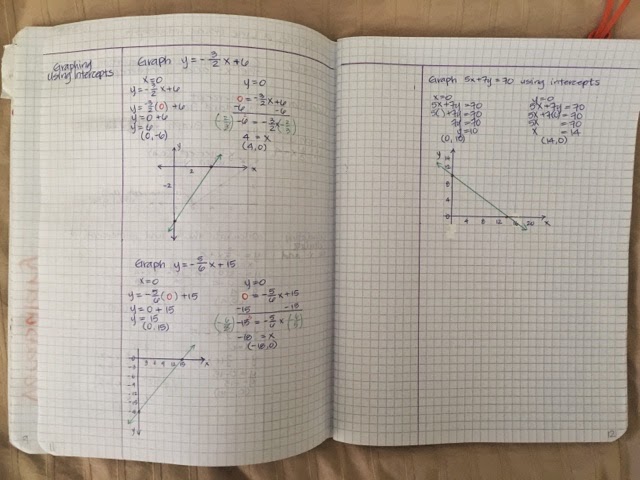 Graphing
using intercepts
Graph y = -3/2 x + 6
x = 0
y = -3/2 x + 6
y = -3/2 (0) + 6
y = 0 + 6
y = 6
(0, -6)
y = 0
0 = -3/2 x + 6
-6 -6
-6 = -3/2 x
4 = x
(4, 0)
y
2
x
-2
Graph y = -5/6 x + 15
x = 0
y = -5/6 (0) + 15
y = 0 + 15
y = 15
(0, 15)
y = 0
0 = -5/6 x + 15
-15 -15
-15 = -5/6 x
= x
x
y
11
Graph 5x + 7y = 70 using intercepts
x = 0
5x + 7y = 70
5( ) + 7y = 70
7y = 70
y = 10
(0, 10)
y = 0
5x + 7y = 70
5x + 7( ) = 70
5x = 70
x = 14
(14, 0)
y
4 8 12 20 x
12